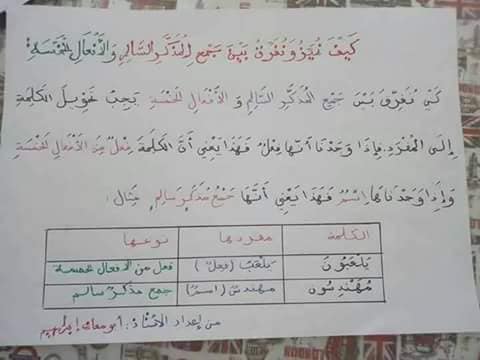 كَيْفَ نُمَيِّزُ وَنُفَرِّقُ بَيْنَ جَمْعِ المُذَكَّرِ السَّالِمِ وَالأَفْعَالِ الخَمْسَةِ؟
كَيْ نُفَرِّقَ بَيْنَ جَمْعِ المُذَكَّرِ السَّالِمِ وَ الأَفْعَالِ الخَمْسَةِ يَجِبُ تَحْوِيلُ الكَلِمَةِ
إِلَى المُفْرَدِ. فَإِذَا وَجَدْنَا أَنَّهَا فِعْلٌ فَهَذَا يَعْنِي أَنَّ الكَلِمَةَ فِعْلٌ مِنَ الأَفْعَالِ الخَمْسَةِ
وَإِذَا وَجَدْنَاهَا اِسْمٌ فَهَذَا يَعْنِي أَنَّهَا جَمْعُ مُذَكَّرٍ سَالِمٍ. مِثَال:
الكلمة مفردها نوعها
يَلْعَبُونَ يَلْعَبُ (فِعْلٌ) فعل من الأفعال الخمسة
مُهَنْدِسُونَ مهندس (اسم) جمع مذكر سالم
من إعداد الأستاذ: أبو معاذ إبراهيم